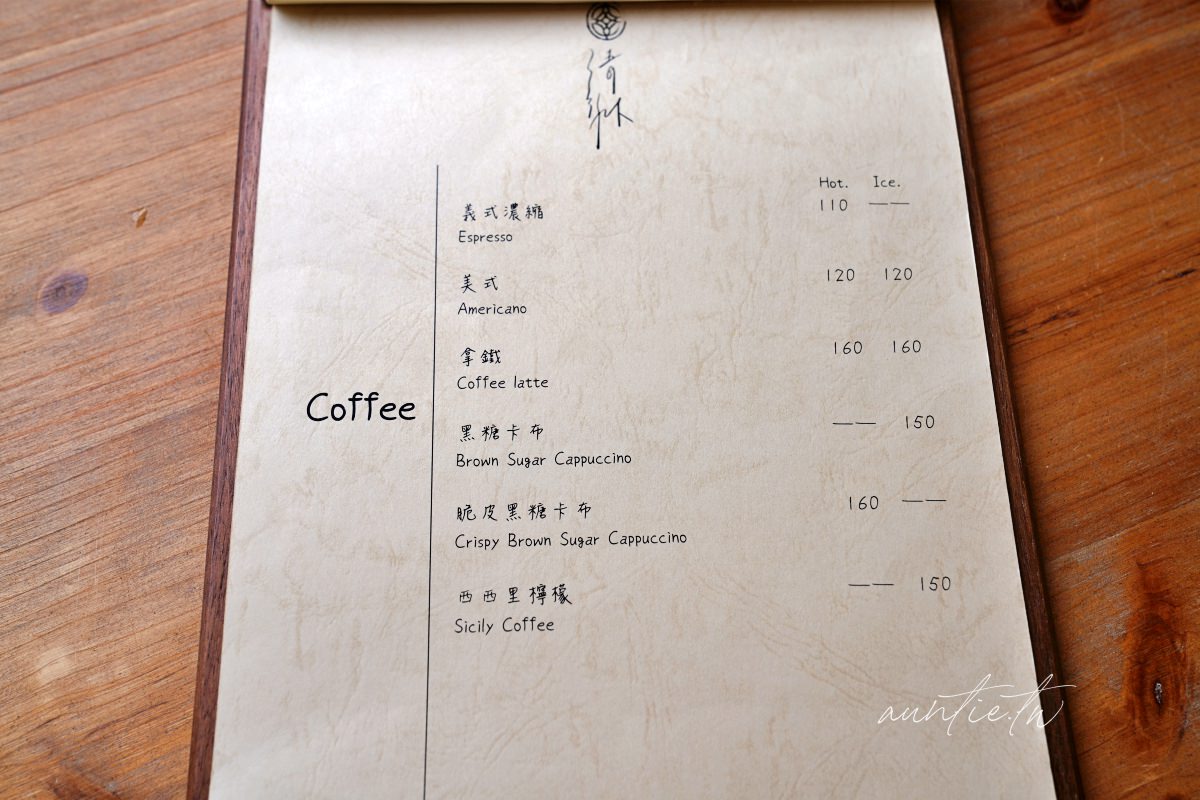 Hot. Ice.
義式濃縮 110 ——
Espresso
美式 120 120
Americano
拿鐵 160 160
Coffee latte
Coffee
黑糖卡布 —— 150
Brown Sugar Cappuccino
脆皮黑糖卡布 160 ——
Crispy Brown Sugar Cappuccino
西西里檸檬 —— 150
Sicily Coffee
auntie.tw